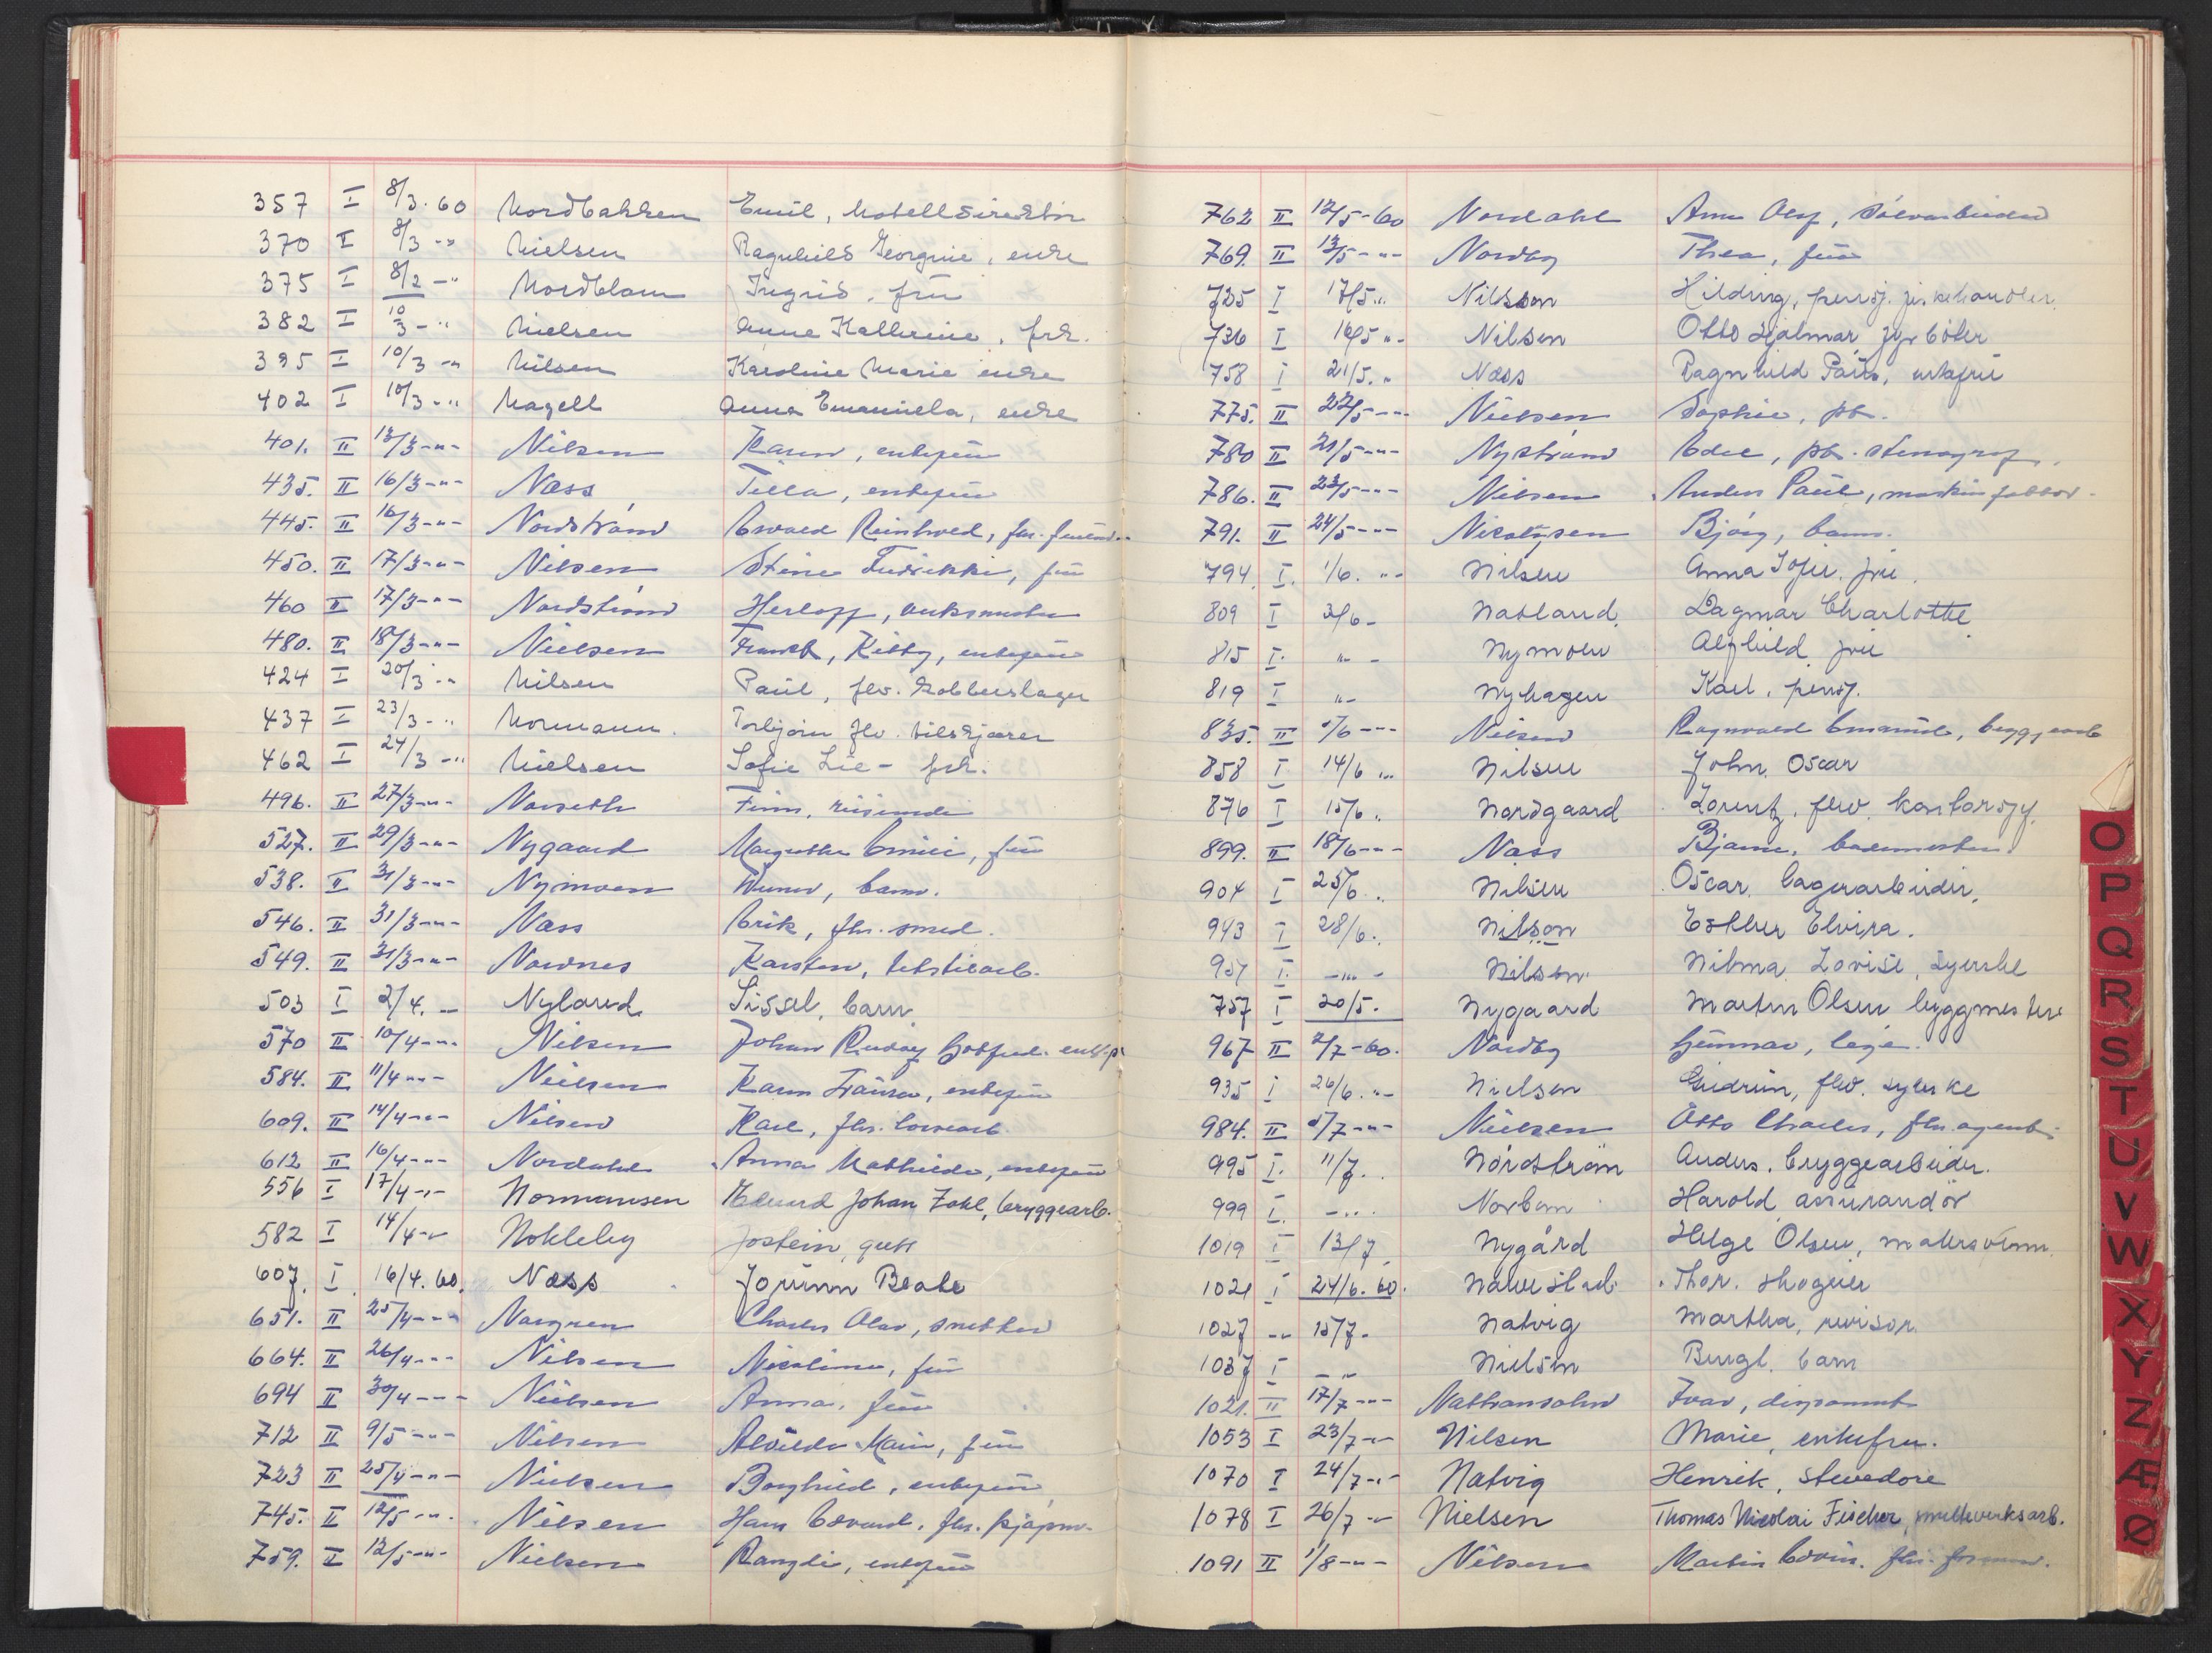 357 I 8/3.60 Nordbakken Emil, Hotelldirektör
370 I 8/3 -" Nielsen Ragnhild Georgine, enke
375 I 8/2 -" Nordblom Ingrid, frü
382 I 10/3 -" Nielsen Anne Kathrine, frk.
395 I 10/3 -" Nilsen Karoline Marie enke
402 I 10/3 -" Nagell Anna Emanuela, enke
401. II 13/3 -"- Nilsen Karen, enkefrü
435. II 16/3 -"- Næss Tilla, enkefrü
445. II 16/3 -"- Nordstrand Reinhold, fhv.
450. II 17/3 -"- Nilsen Stine Fredrikke, frü
460 II 17/3 -"- Nordström Herlopp,
480. II 18/3 -"- Nielsen Kitty, enkefrü
424 I 20/3 -" Nilsen Paul, flv. kobberslager
437 I 23/3 -" Normann. Torbjörn flv. bilskjører
462 I 24/3 -" Nielsen Sofie Lie - frk.
496. II 27/3 -"- Norseth Finn, reisende
527. II 29/3 -"- Nygaard Margrethe Emilie, frü
538. II 31/3 -"- Nymoen barn.
546. II 31/3 -"- Næss Erik, fhv. smed.
549. II 31/3 -"- Nordnes Karsten, tekstilarb.
503 I 2/4. -" Nyland Sissel, barn
570 II 10/4 -"- Nilsen Johan
584. II 11/4 -"- Nielsen Karen Laura, enkefrü
609. II 14/4 -"- Nilsen Karl, fhv.
612 II 16/4 -"- Nordahl Anna Mathilde, enkefrü
556 I 17/4 -"- Normannsen Edvard Johan Zahl, bryggearb.
582 I 14/4 -" Nokleby Jostein, gutt
607. I 16/4.60. Næss Jorünn Beate
651. II 25/4 -"- Norgren Charles Olav, snekker
664. II 26/4 -"- Nilsen Nicoline, frü
694 II 30/4 -"- Nielsen Anna, frü
712 II 9/5 -"- Nilsen Alvilde Marie, frü
723 II 25/4 -"- Nielsen Borghild, enkefrü
745. II 12/5 -"- Nilsen Hans Edvard, fhv. kjøpm.
759. II 12/5 -"- Nielsen Rangli, enkefrü
762 II 12/5-60 Nordahl Arne Olaf, sölvarbeider
769. II 13/5 -"- Nordby Thea, frü
725 I 17/5 " Nilsson Hilding, pensj. fiskehandler
736 I 16/5 "- Nilsen Otto Hjalmar,
758 I 21/5. " Næss Ragnhild Paüs, enkefrü
775. II 22/5 -"- Nielsen Sophie, pb.
780 II 21/5 -"- Nyström Edel, pb. stenograf.
786. II 23/5 -"- Nilsen Anders Paül,
791. II 24/5 -"- Nicolaysen Bjørg, barn.
794 I. 1/6. "- Nilsen Anna Sofie. frü.
809 I 3/6 - Nasland Dagmar Charlotte
815 I. "- Nymoen Alfhild frü
819 I "- Nyhagen Karl, pensj.
835. II 1/6 -"- Nilsen Ragnvald Emanuel, bryggearb
858 I 14/6 " Nilsen John Oscar
876 I 15/6 " Nordgaard Lorentz, flv. kontorsjef.
899. II 18/6 -"- Næss Bjarne, bademester
904 I 25/6 " Nilsen Oscar. lagerarbeider.
943 I 28/6. " Nilson Esther Elvira.
957 I. -"- Nilsen Nilma Lovise, syerske
757 I 20/5. Nygaard Martin Olsen byggmester
967 II 2/7-60. Nordby Günnar, lege.
935 I 26/6. "- Nielsen Güdrün, flv. syerske
984. II 5/7 -"- Nielsen Otto Charles, fhv. agent
995 I. 11/7. Nordström Anders, bryggearbeider.
999 I. -".. Norbom Harold assürandör
1019 I 13/7 Nygård Helge Olsen, malersvenn.
1021 I 24/6.60. Navestad Thor.
1027 -" 15/7 - Natvig Martha, revisor
1037 I -"- Nielsen barn
1021. II 17/7 -"- Nathansohn Ivar, disponent
1053 I 23/7 -"- Nilsen Marie, enkefru.
1070 I 24/7 -"- Natvig Henrik, stuedore
1078 I 26/7 -" Nielsen Thomas Nicolai Fischer, smelteverksarb.
1091 II 1/8 -"- Nilsen Martin Edvin. fhv. formann.
O
P
Q
R
S
T
U
V
W
X
Y
Z
Æ
Ø